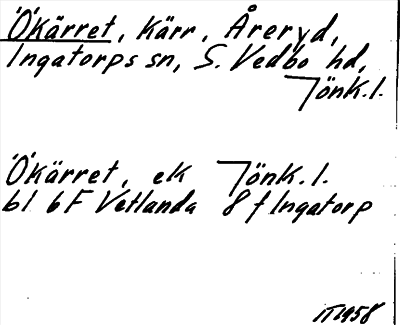 Ökärret, kärr, Åreryd,
Ingatorps sn, S. Vedbo hd,
Jönk. l.
Ökärret, ek Jönk. l.
bl 6 F Vetlanda 8 f Ingatorp
IT 1958